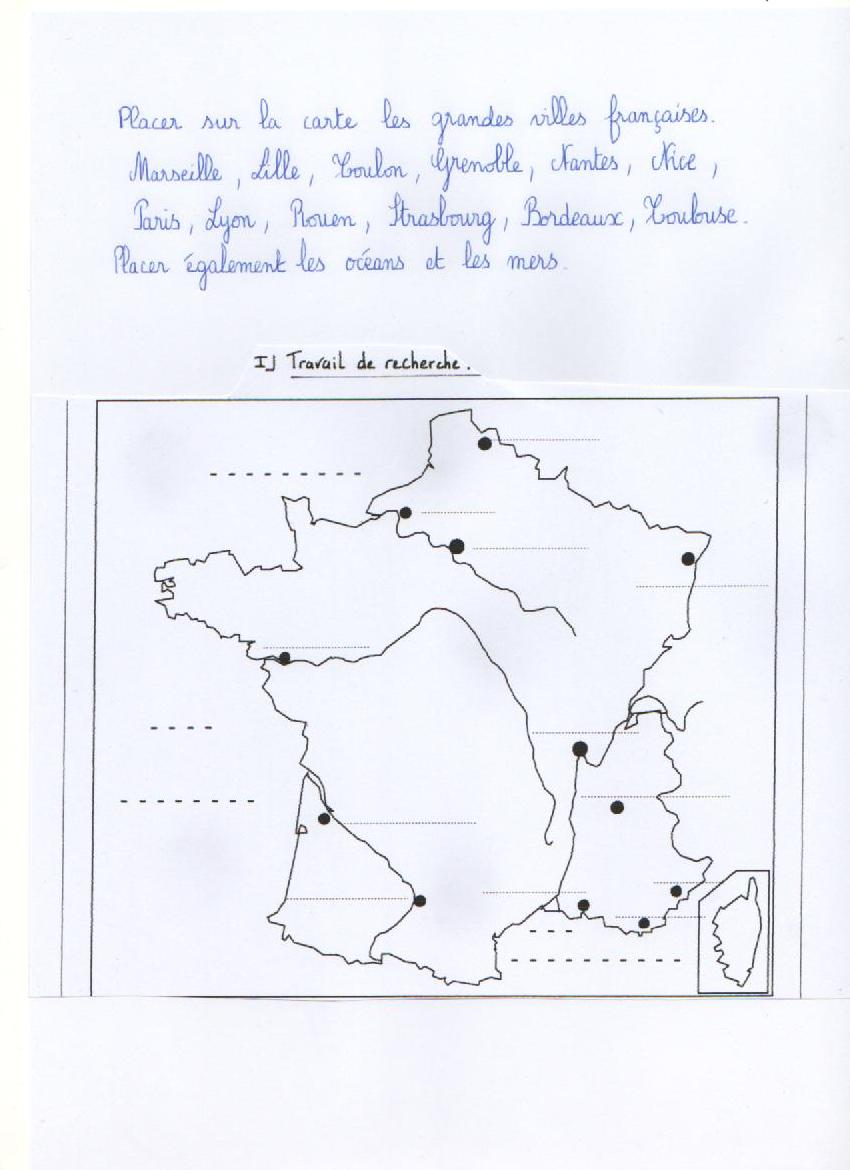 Placer sur la carte les grandes villes françaises.
Marseille, Lille, Toulon, Grenoble, Nantes, Nice,
Paris, Lyon, Rouen, Strasbourg, Bordeaux, Toulouse.
Placer également les océans et les mers.
I] Travail de recherche.